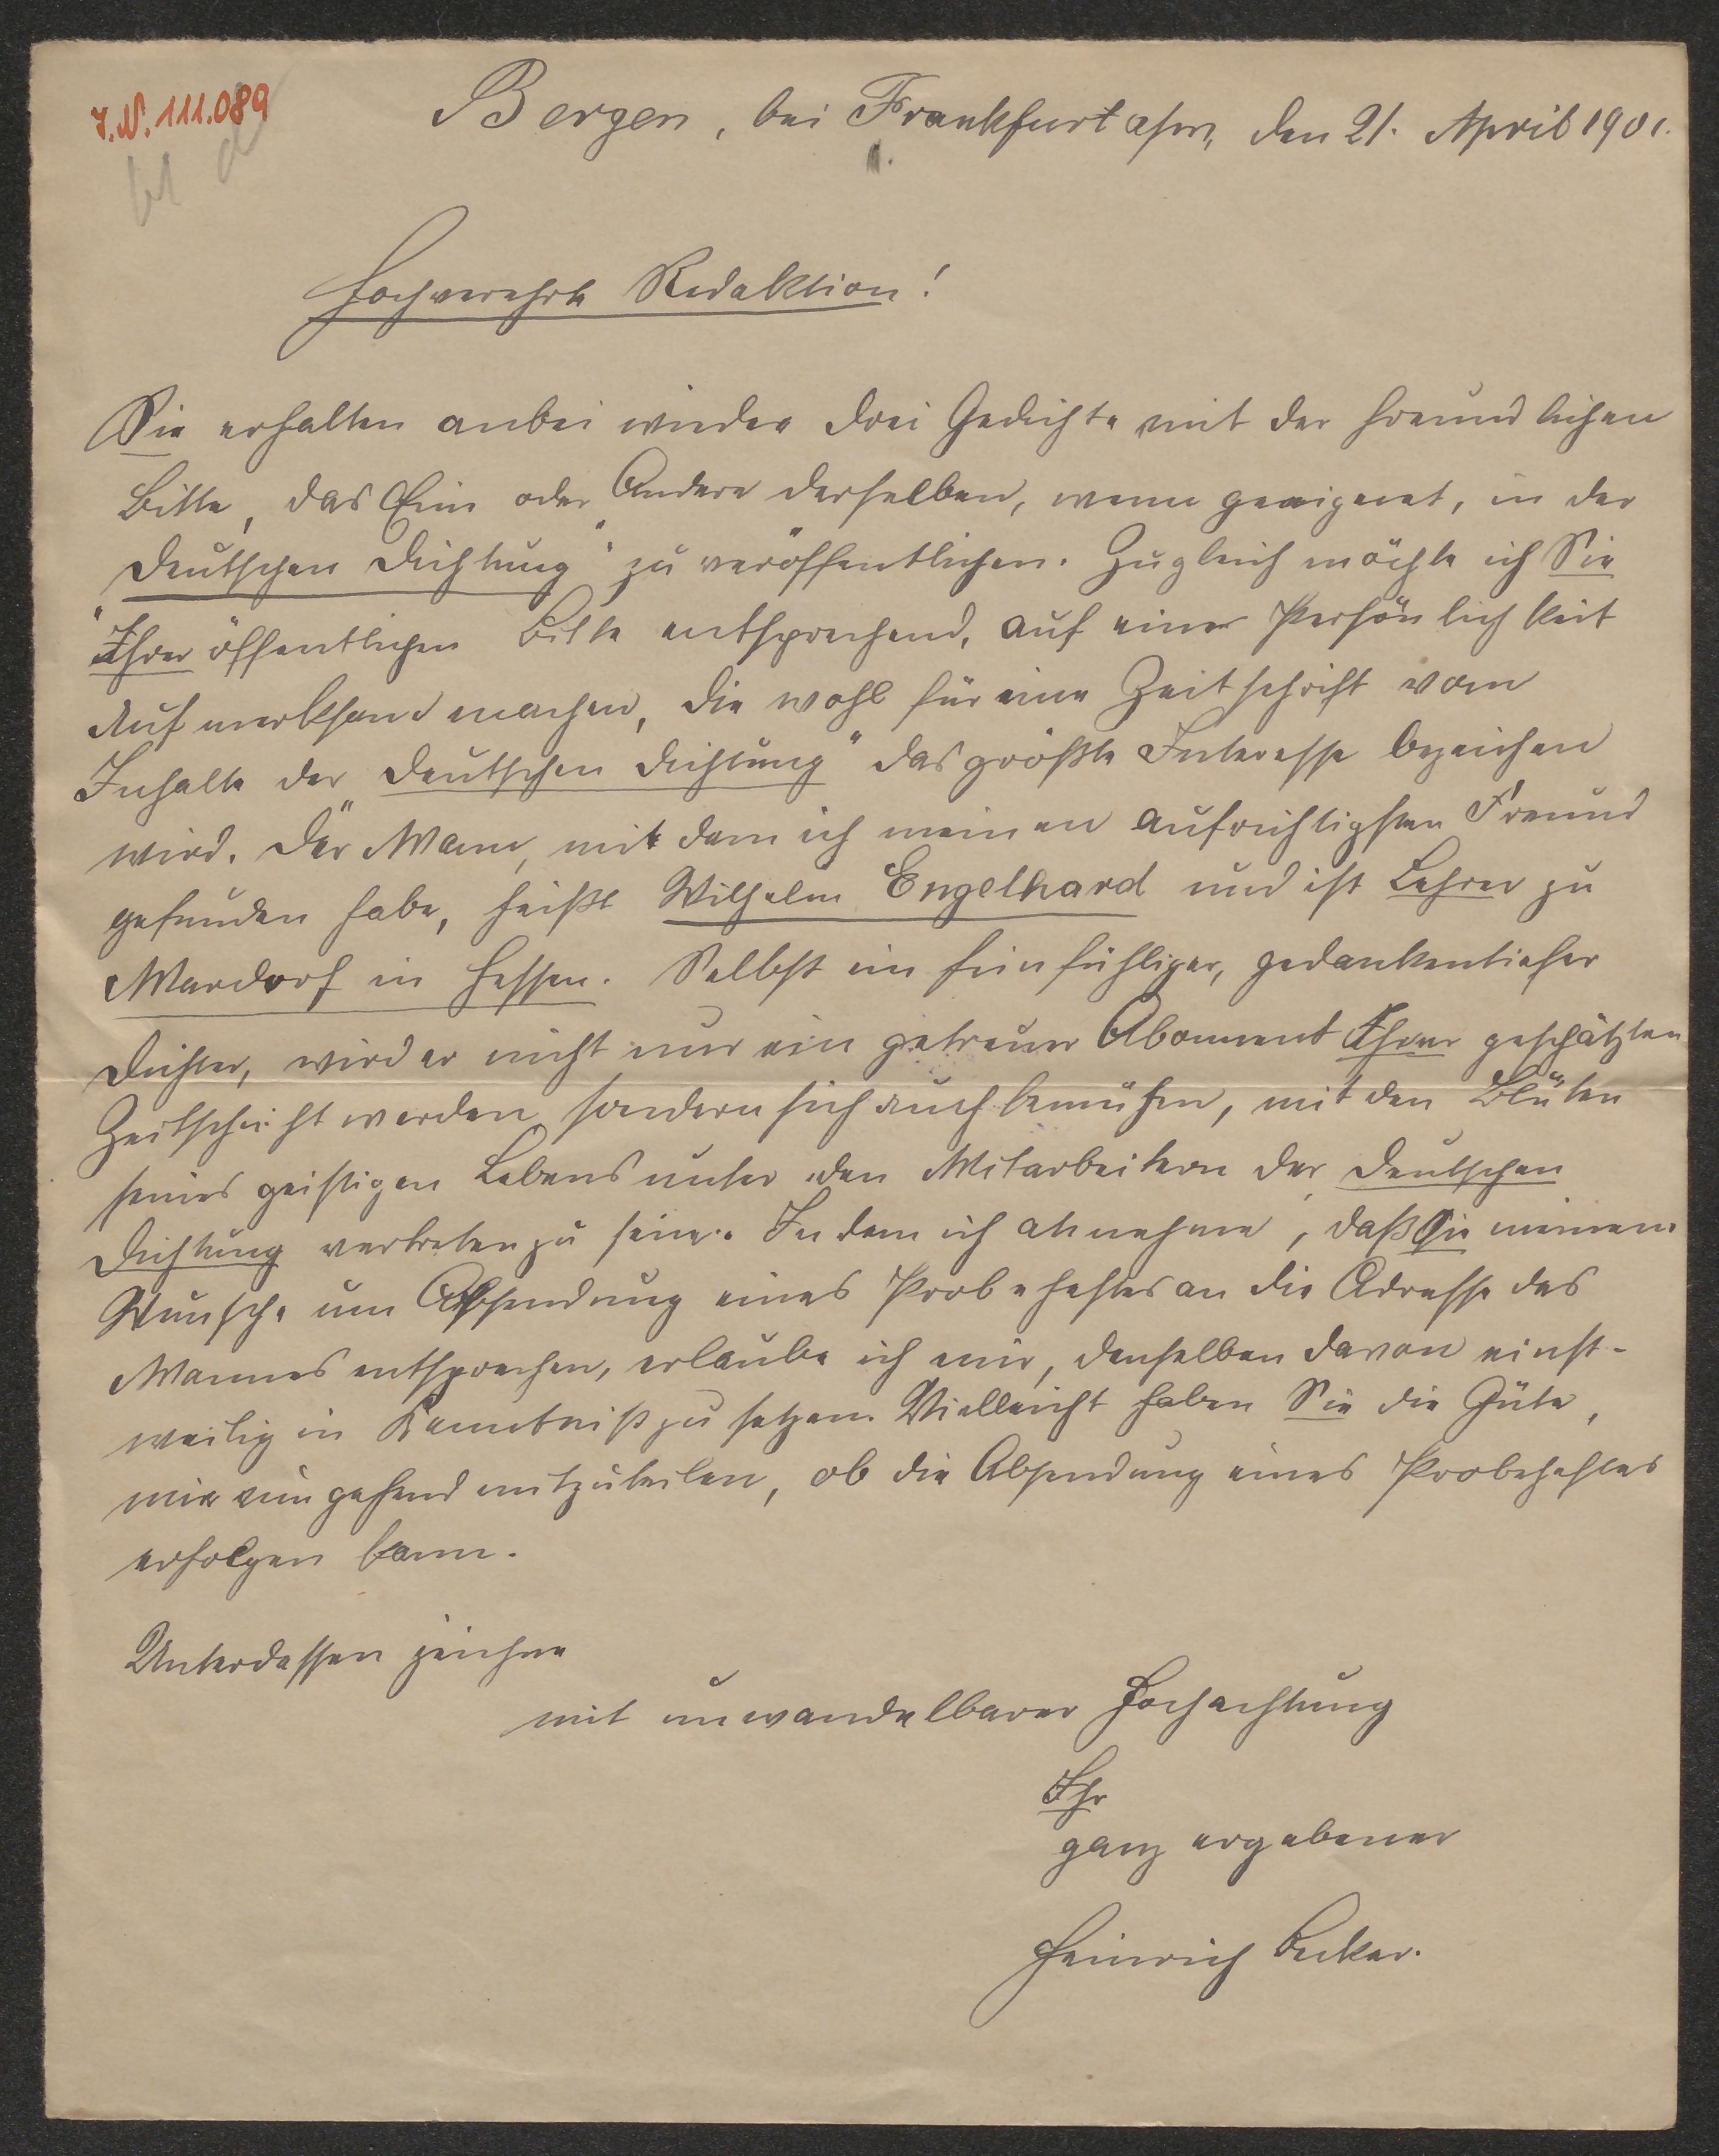 J.N. 111.089
Bergen, bei Frankfurt a/m, den 21. April 1901.
Hochverehrte Redaktion!
Sie erhalten anbei wieder drei Gedichte mit der freundlichen
Bitte, das Ein oder Andere derselben, wenn geeignet, in der
"Deutschen Dichtung" zu veröffentlichen. Zugleich möchte ich Sie
Ihrer öffentlichen Bitte entsprechend, auf einer Persönlichkeit
aufmerksam machen, die wohl für eine Zeitschrift vom
Inhalte der "Deutschen Dichtung" das größte Interesse bezeichen
wird. Der Mann, mit dem ich meinen aufrichtigsten Freund
gefunden habe, heißt Wilhelm Engelhard und ist Lehrer zu
Mardorf in Hessen. Selbst ein feinfühliger, gedankentiefer
Dichter, wird er nicht nur ein getreuer Abonnent Ihrer geschätzten
Zeitschrift werden, sondern sich auch bemühen, mit den Blüten
seines geistigen Lebens unter den Mitarbeitern der Deutschen
Dichtung vertreten zu sein. Indem ich annehme, daß Sie meinem
Wunsche um Absendung eines Probeheftes an die Adresse des
Mannes entsprechen, erlaube ich mir, denselben davon einst-
weilig in Kenntniß zu setzen. Vielleicht haben Sie die Güte,
mir umgehend mitzuteilen, ob die Absendung eines Probeheftes
erfolgen kann.
Unterdessen zeichne
mit unwandelbarer Hochachtung
Ihr
ganz ergebener
Heinrich Becker.